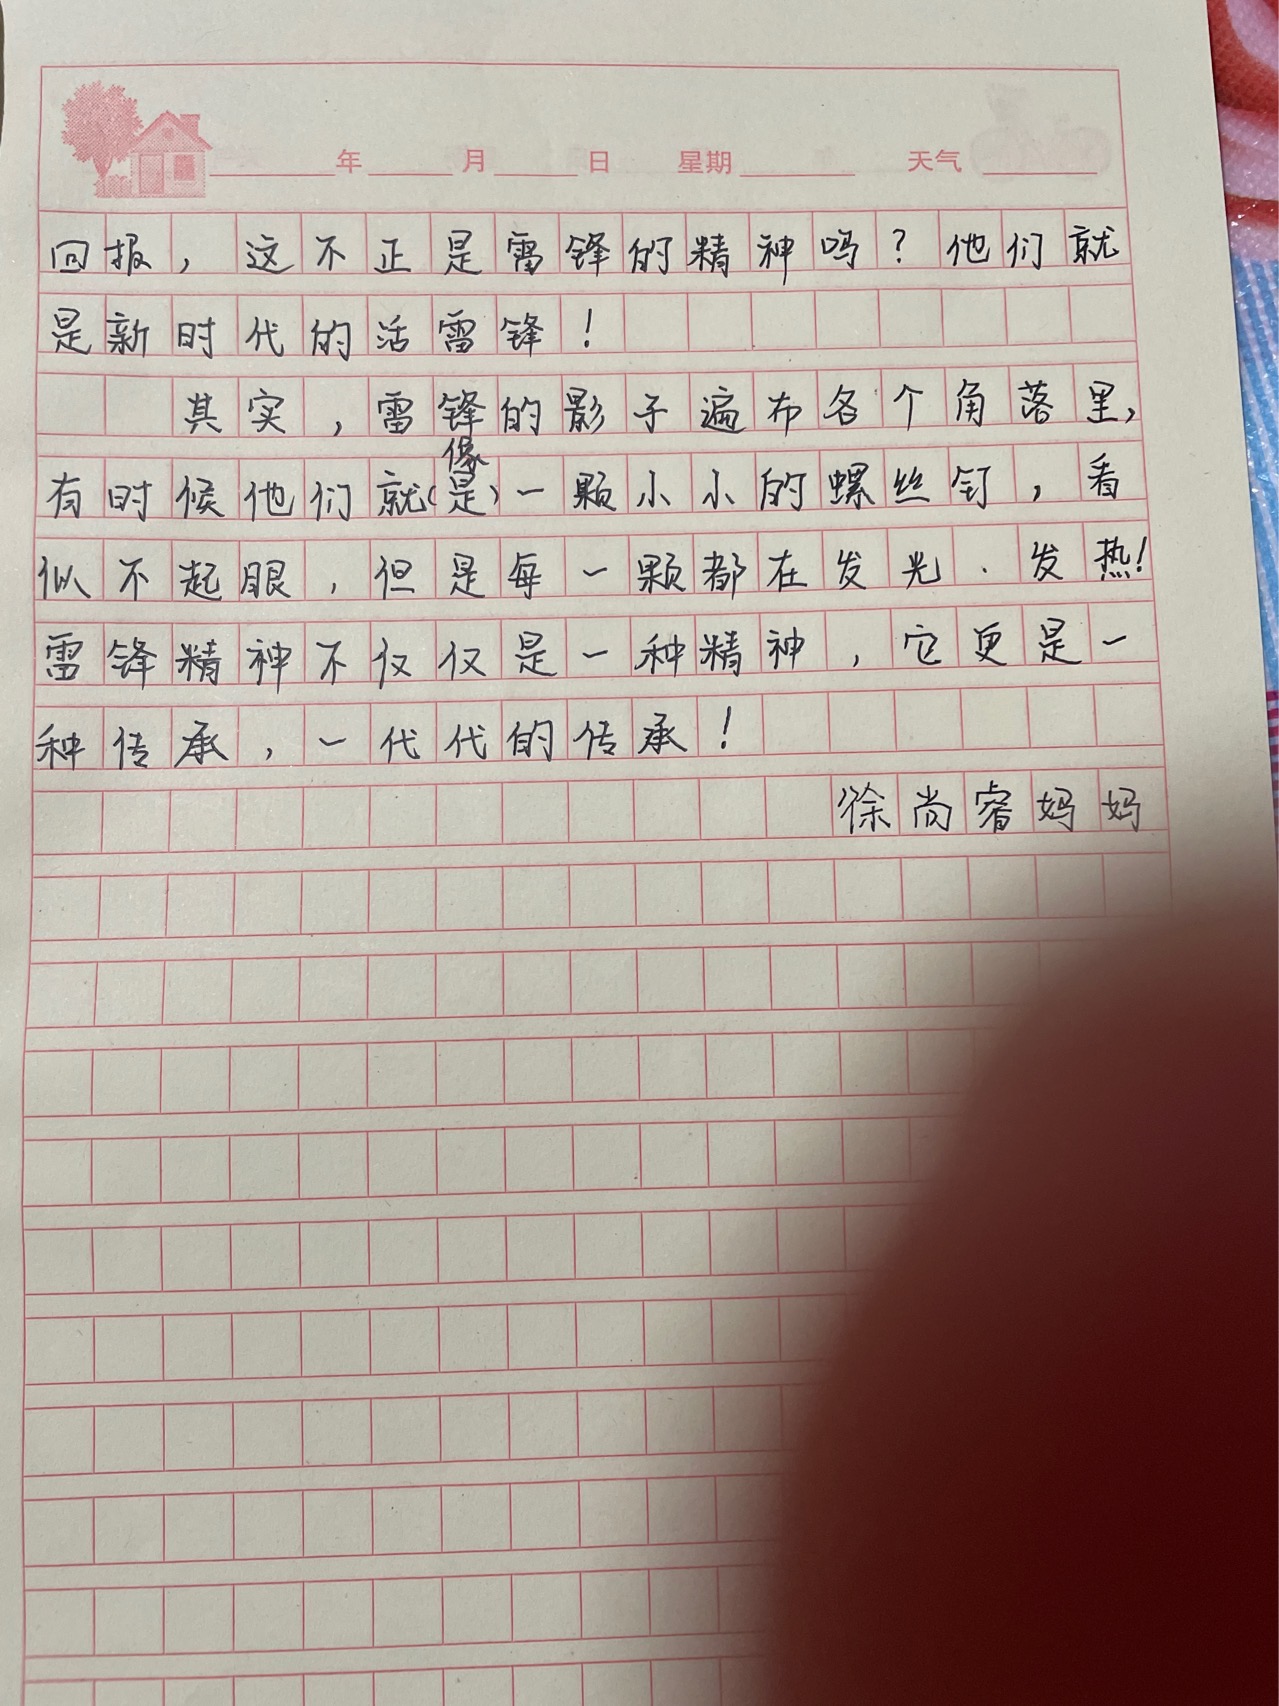 年 月 日 星期 天气
回报，这不正是雷锋的精神吗？他们就
是新时代的活雷锋！
其实，雷锋的影子遍布各个角落里，
像
有时候他们就(是)一颗小小的螺丝钉，看
似不起眼，但是每一颗都在发光．发热！
雷锋精神不仅仅是一种精神，它更是一
种传承，一代代的传承！
徐尚睿妈妈